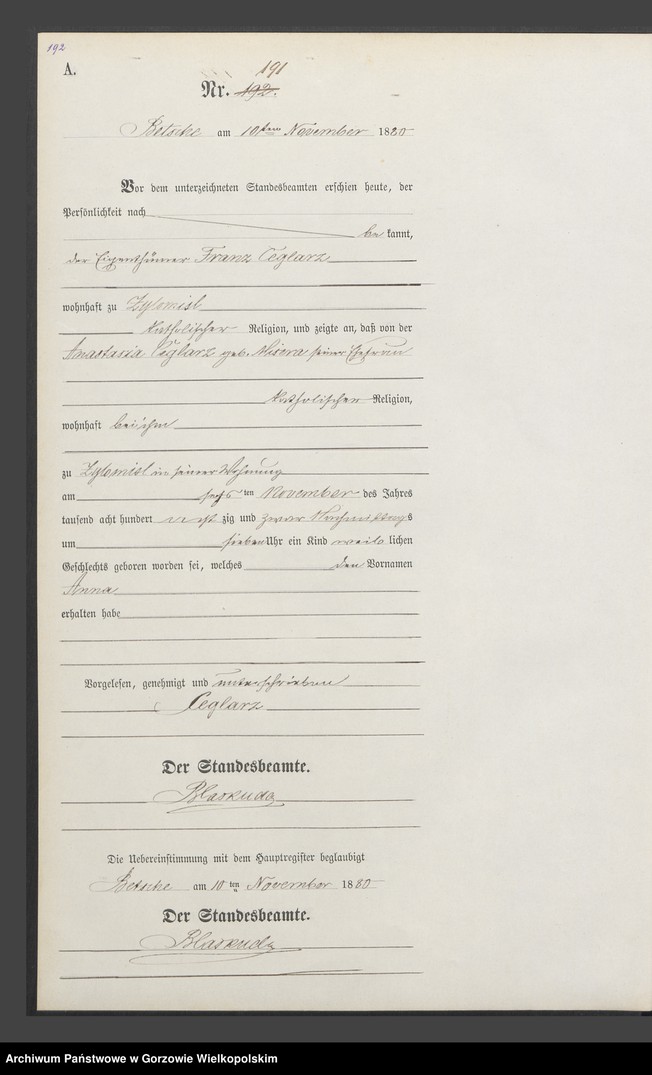 192
A.
191
Nr. 192.
Betsche am 10ten November 1880
Vor dem unterzeichneten Standesbeamten erschien heute, der
Persönlichkeit nach
be kannt,
der Eigenthümer Franz Ceglarz
wohnhaft zu Zylomisl
katholischer Religion, und zeigte an, daß von der
Anastasia Ceglarz geb. seiner Ehefrau
katholischer Religion,
wohnhaft bei ihm
zu Zylomisl in seiner Wohnung
am sechs ten November des Jahres
tausend acht hundert acht zig und zwar Nachmittags
um sieben Uhr ein Kind weib lichen
Geschlechts geboren worden sei, welches den Vornamen
Anna
erhalten habe
Vorgelesen, genehmigt und unterschrieben
Ceglarz
Der Standesbeamte.
Blaskuda
Die Uebereinstimmung mit dem Hauptregister beglaubigt
Betsche am 10 ten November 1880
Der Standesbeamte.
Blaskuda
Archiwum Państwowe w Gorzowie Wielkopolskim